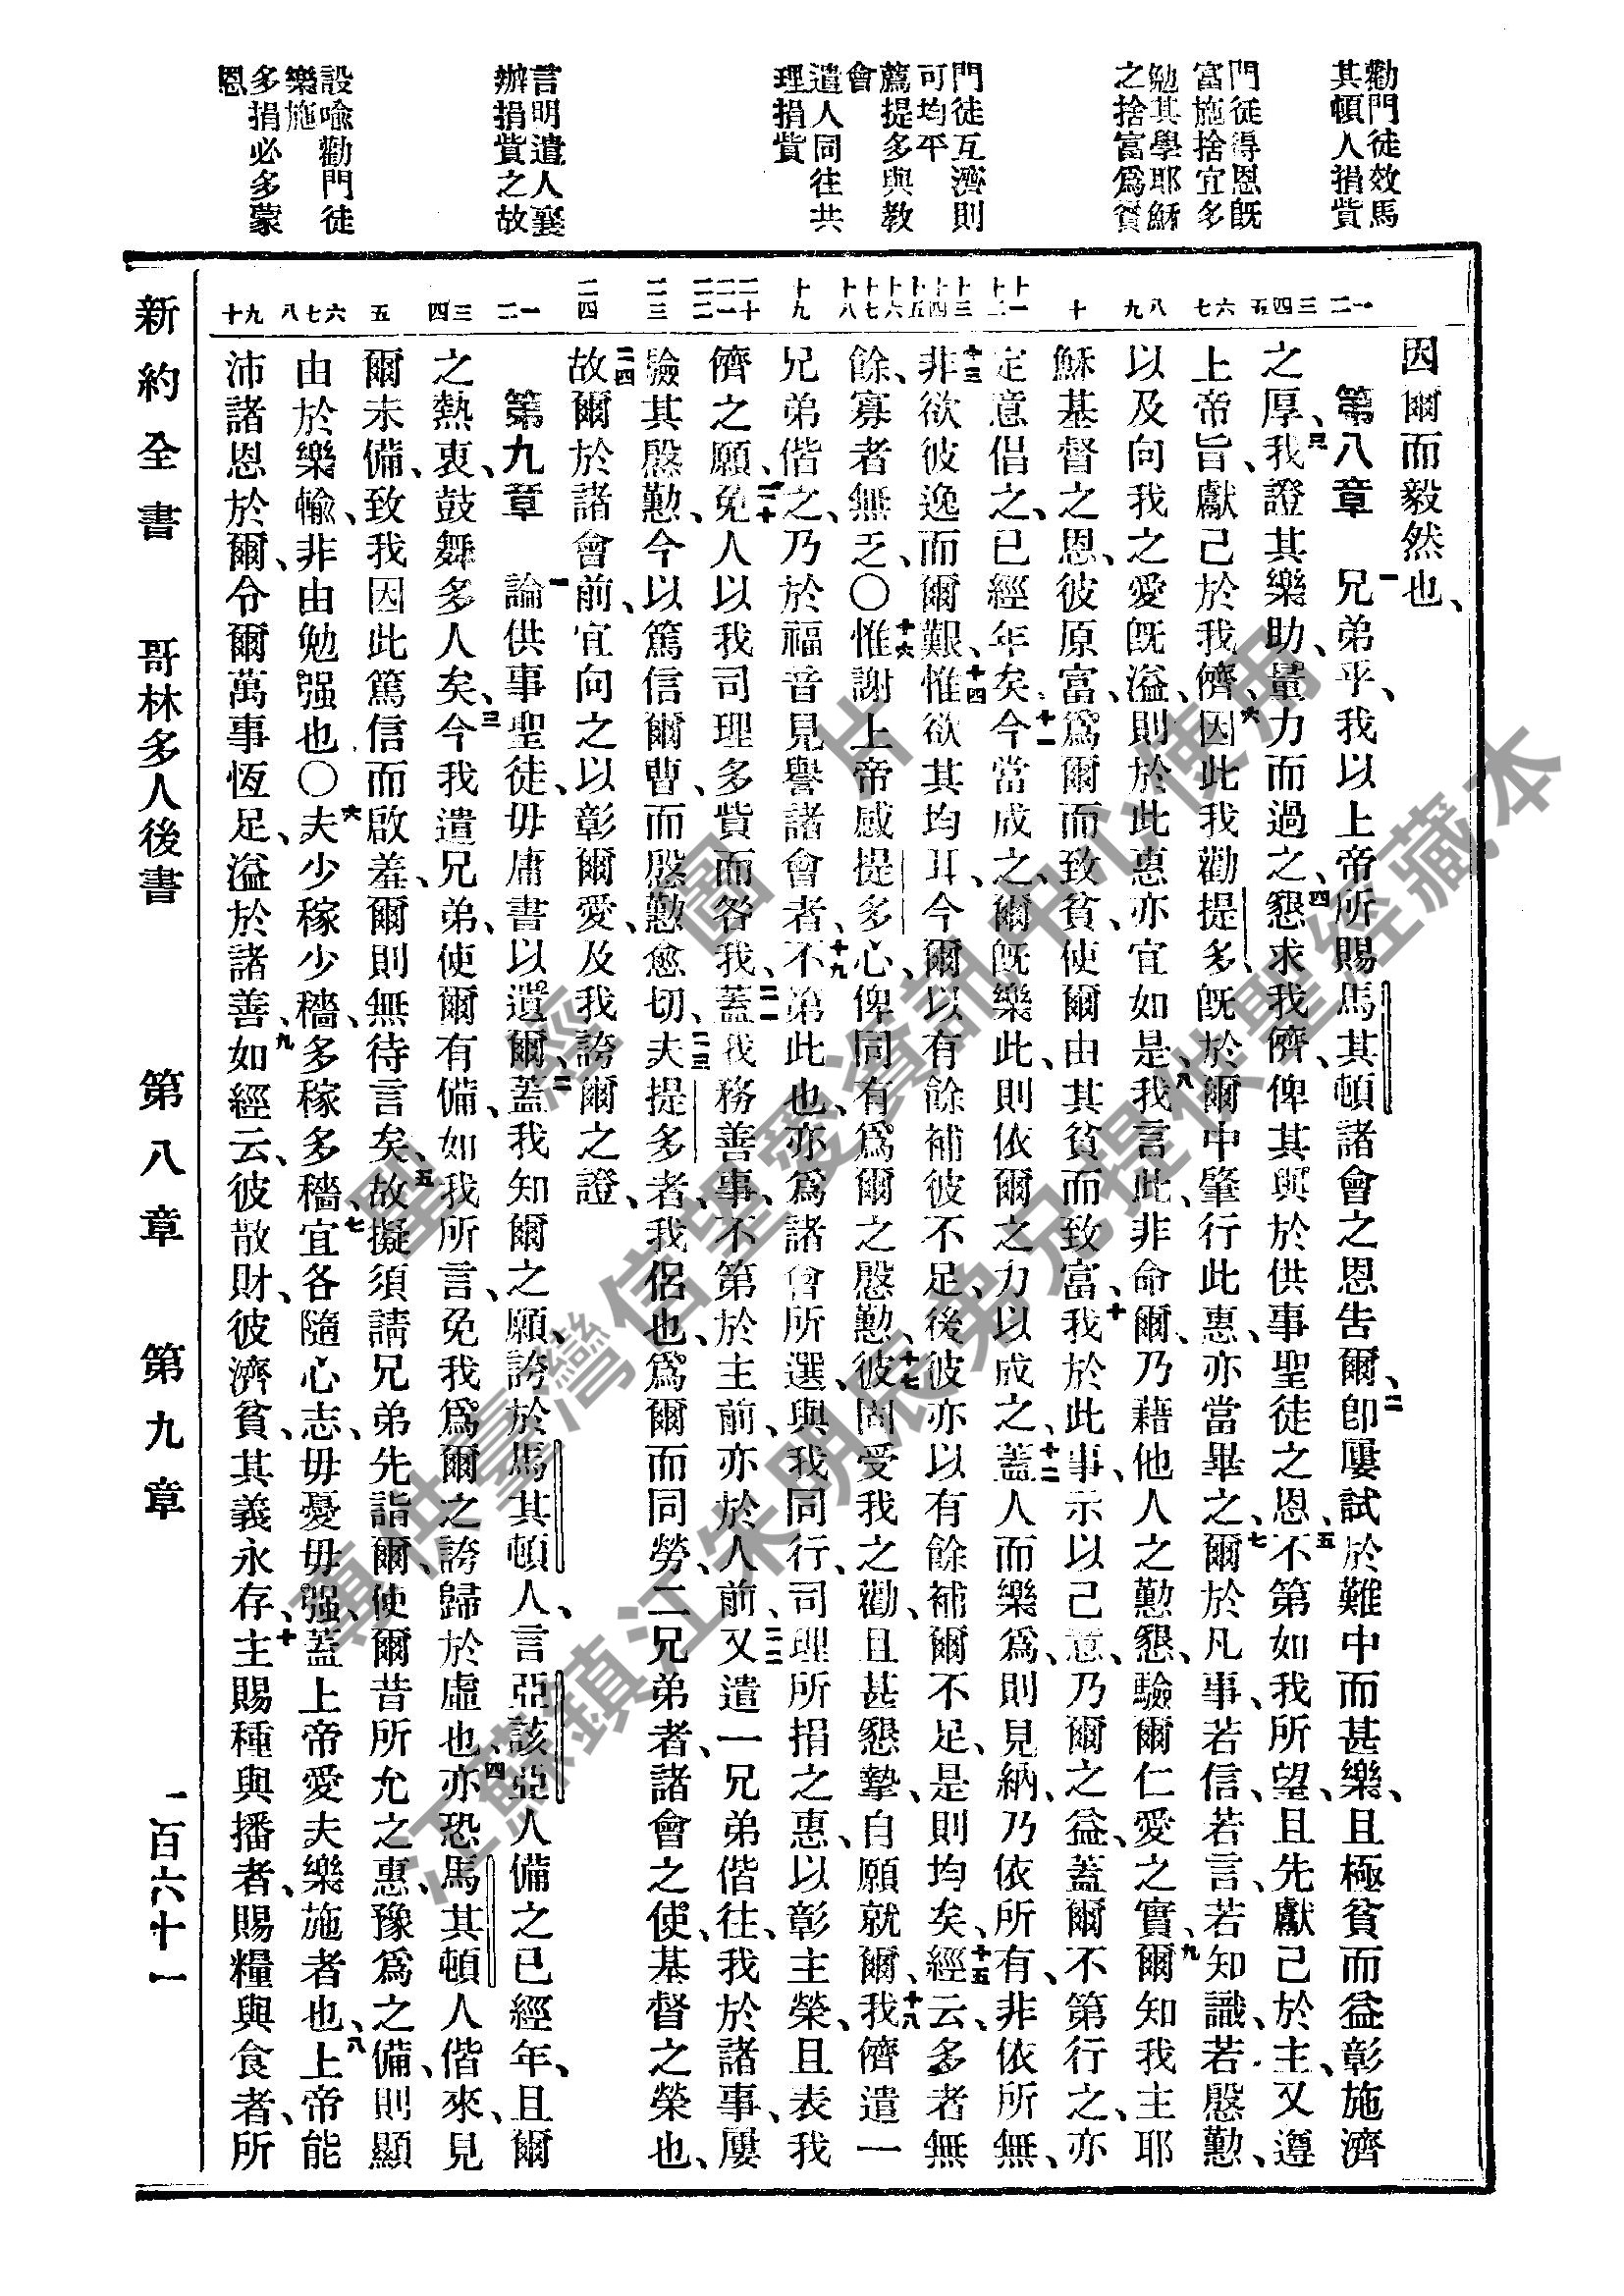 勸門徒效馬
其頓人捐貲
門徒得恩旣
富施捨宜多
勉其學耶穌
之捨富爲貧
門徒互濟則
可均平
薦提多與教
會
遣人同往共
理捐貲
言明遣人襄
辦捐貲之故
設喩勸門徒
樂施
多捐必多蒙
恩
因爾而毅然也、
第八章 一兄弟乎、我以上帝所賜馬其頓諸會之恩告爾、二卽屢試於難中而甚樂、且極貧而益彰施濟
之厚、三我證其樂助、量力而過之、四懇求我儕、俾其與於供事聖徒之恩、五不第如我所望、且先獻己於主、又遵
上帝旨、獻己於我儕、六因此我勸提多、旣於爾中肇行此惠、亦當畢之、七爾於凡事、若信、若言、若知識、若慇懃、
以及向我之愛旣溢、則於此惠亦宜如是、八我言此、非命爾、乃藉他人之懃懇、驗爾仁愛之實、九爾知我主耶
穌基督之恩、彼原富、爲爾而致貧、使爾由其貧而致富、十我於此事、示以己意、乃爾之益、蓋爾不第行之、亦
定意倡之、已經年矣、十一今當成之、爾旣樂此、則依爾之力以成之、十二蓋人而樂爲、則見納、乃依所有、非依所無、
十三非欲彼逸而爾艱、十四惟欲其均耳、今爾以有餘補彼不足、後彼亦以有餘補爾不足、是則均矣、十五經云、多者無
餘、寡者無乏、〇十六惟謝上帝感提多心、俾同有爲爾之慇懃、十七彼固受我之勸、且甚懇摯、自願就爾、十八我儕遣一
兄弟偕之、乃於福音見譽諸會者、十九不第此也、亦爲諸會所選、與我同行、司理所捐之惠、以彰主榮、且表我
儕之願、二十免人以我司理多貲而咎我、二一蓋我務善事、不第於主前、亦於人前、二二又遣一兄弟偕往、我於諸事、屢
驗其慇懃、今以篤信爾曹、而慇懃愈切、二三夫提多者、我侶也、爲爾而同勞、二兄弟者、諸會之使、基督之榮也、
二四故爾於諸會前、宜向之以彰爾愛、及我誇爾之證、
第九章 一論供事聖徒、毋庸書以遺爾、二蓋我知爾之願、誇於馬其頓人、言亞該亞人備之已經年、且爾
之熱衷、鼓舞多人矣、三今我遣兄弟、使爾有備、如我所言、免我爲爾之誇歸於虛也、四亦恐馬其頓人偕來、見
爾未備、致我因此篤信而啟羞、爾則無待言矣、五故擬須請兄弟先詣爾、使爾昔所允之惠、豫爲之備、則顯
由於樂輸、非由勉强也〇六夫少稼少穡、多稼多穡、七宜各隨心志、毋憂毋强、蓋上帝愛夫樂施者也、八上帝能
沛諸恩於爾、令爾萬事恆足、溢於諸善、九如經云、彼散財、彼濟貧、其義永存、十主賜種與播者、賜糧與食者、所
一二
三四五
六七
八九
十
十一十二
十三十四十五
十六十七十八
十九
二十二一二二
二三
二四
一二
三四
五
六七八
九十
新約全書 哥林多人後書 第八章 第九章 一百六十一
聖經圖片
專供臺灣信望愛資訊中心使用
江蘇鎮江朱明辰弟兄提供聖經藏本